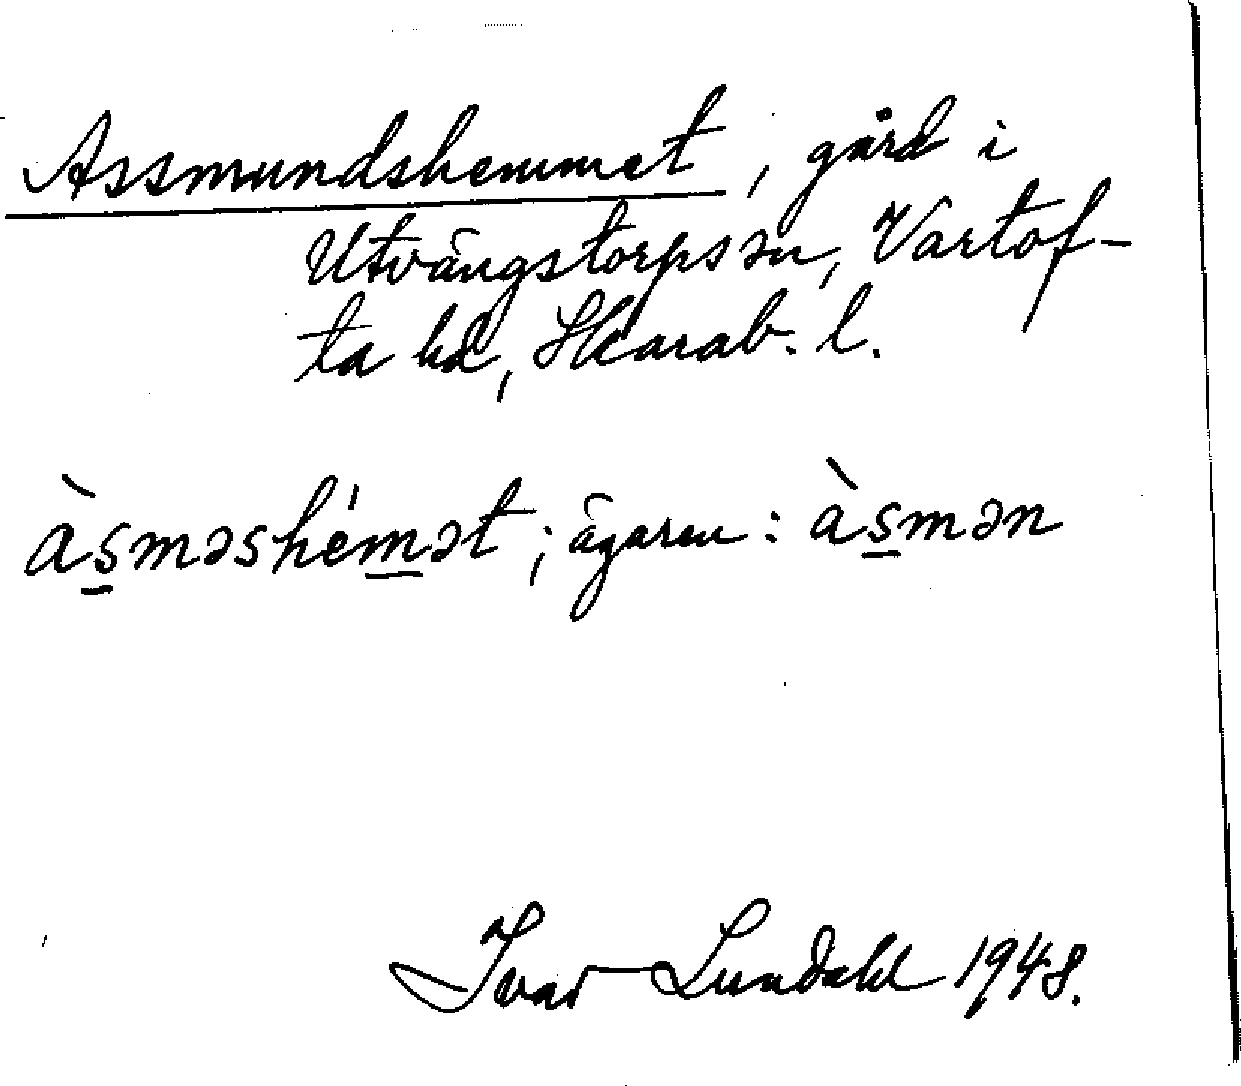 Assmundshemmet, gård i
Utvängstorps sn, Vartof-
ta hd, Skarab. l.
às̲məshém̲ət; ägaren: às̲mən
Ivar Lundahl 1948.